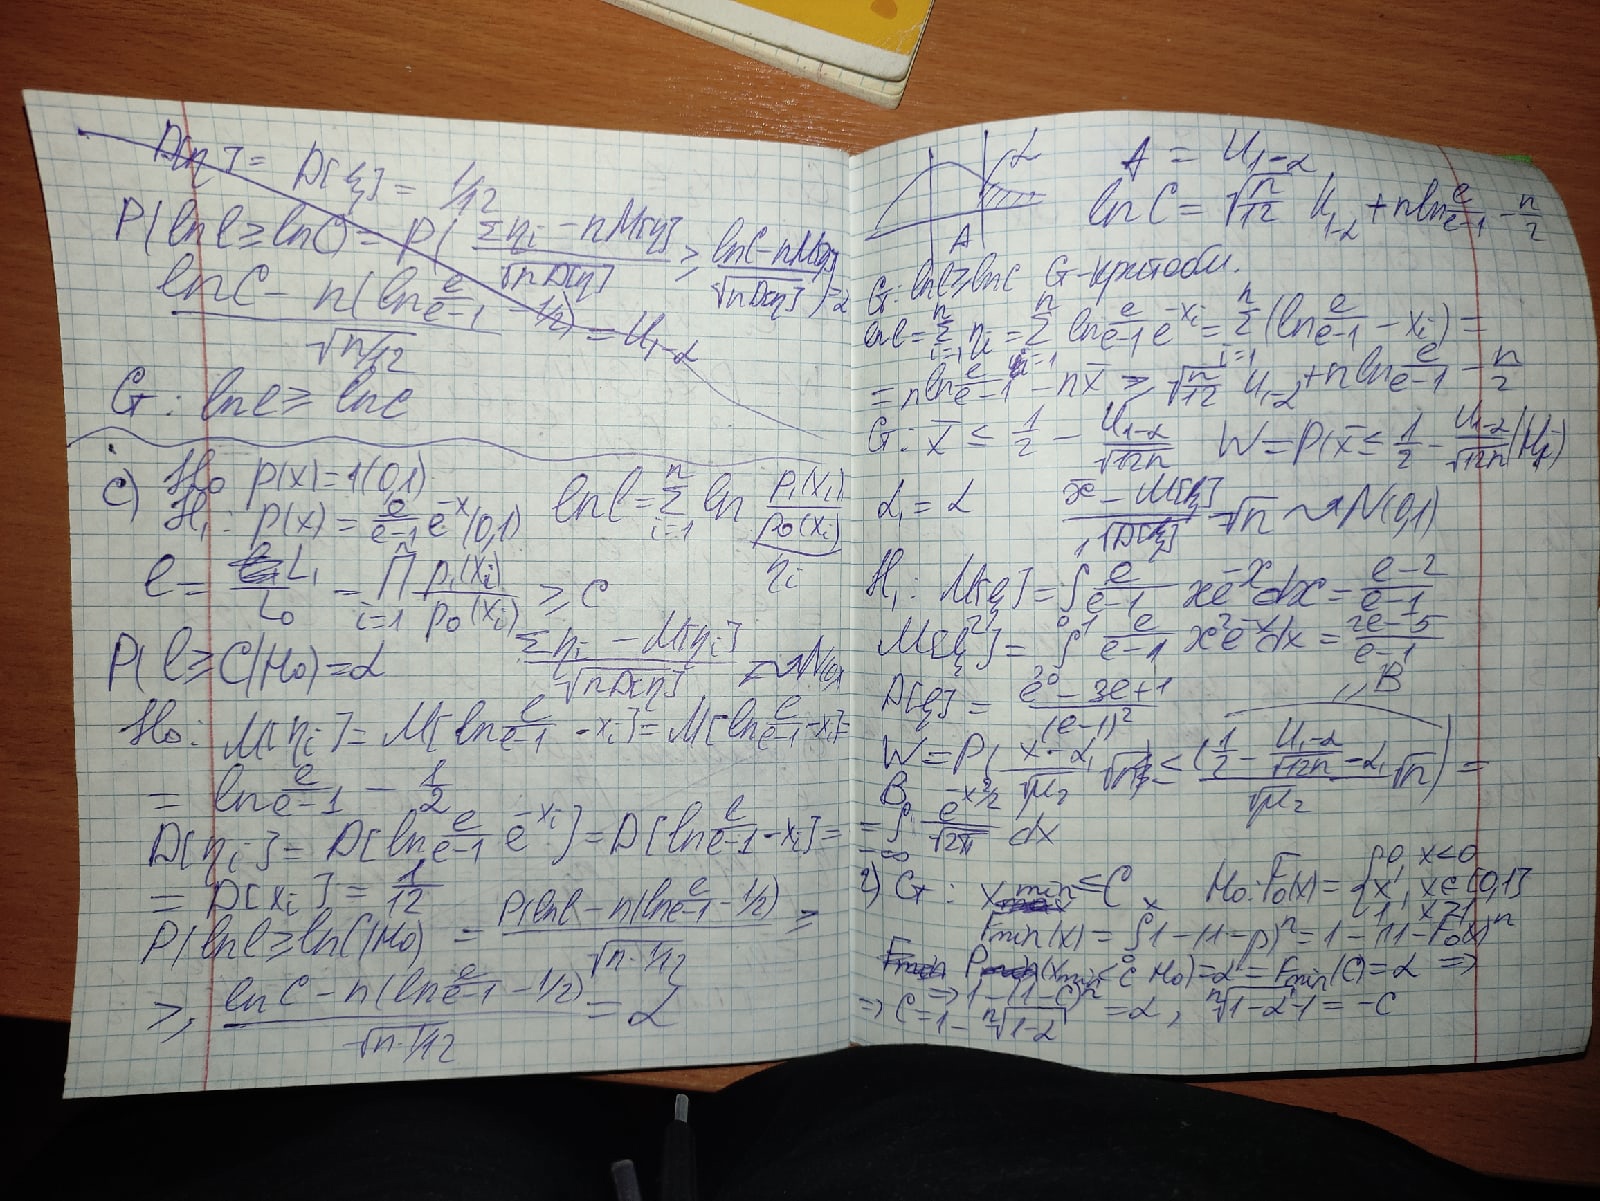 D[η] = D[ξ] = 1/12
P(ln l ≥ ln C) = P( (Ση_i − nM[η])/√(nD[η]) ≥ (ln C − nM[η])/√(nD[η]) ) = α
(ln C − n(ln e/(e−1) − 1/2))/√(n/12) = U_{1−α}
G: ln l ≥ ln c
c) H₀ p(x) = 1(0,1)
H₁: p(x) = e/(e−1) e^{−x}(0,1)
ln l = Σ_{i=1}^{n} ln p₁(x_i)/p₀(x_i)
η_i
l = L₁/L₀ = Π_{i=1}^{n} p₁(x_i)/p₀(x_i) ≥ C
P(l ≥ C|H₀) = α
(Ση_i − M[η_i])/√(nD[η]) ~ N(0,1)
H₀: M[η_i] = M[ln e/(e−1) − x_i] = M[ln e/(e−1) − x_i] =
= ln e/(e−1) − 1/2
D[η_i] = D[ln e/(e−1) e^{−x_i}] = D[ln e/(e−1) − x_i] =
= D[x_i] = 1/12
P(ln l ≥ ln C|H₀) = P(ln l − n(ln e/(e−1) − 1/2)/√(n·1/12) ≥
≥ (ln C − n(ln e/(e−1) − 1/2))/√(n·1/12) = α
α
A
A = U_{1−α}
ln C = √(n/12) U_{1−α} + n ln e/(e−1) − n/2
G: ln l ≥ ln c
ln l = Σ_{i=1}^{n} η_i = Σ_{i=1}^{n} ln e/(e−1) e^{−x_i} = Σ_{i=1}^{n} (ln e/(e−1) − x_i) =
= n ln e/(e−1) − n x̄ ≥ √(n/12) U_{1−α} + n ln e/(e−1) − n/2
G: x̄ ≤ 1/2 − U_{1−α}/√(12n) W = P(x̄ ≤ 1/2 − U_{1−α}/√(12n) |H₁)
α₁ = α (x̄ − M[ξ])/√(D[ξ]) √n ~ N(0,1)
H₁: M[ξ] = ∫₀¹ e/(e−1) x e^{−x} dx = (e−2)/(e−1)
M[ξ²] = ∫₀¹ e/(e−1) x² e^{−x} dx = (2e−5)/(e−1)
D[ξ] = (e² − 3e + 1)/(e−1)²
B
W = P( (x̄ − α₁)/√μ₂ √n ≤ (1/2 − U_{1−α}/√(12n) − α₁)√n/√μ₂ ) =
= ∫_{−∞}^{B} e^{−x²/2}/√(2π) dx
2) G: x_min ≤ C H₀: F₀(x) = {0, x<0
x, x∈[0,1]
1, x>1
F_min(x) = ∫₀ˣ 1 − (1−p)ⁿ = 1 − (1−F₀(x))ⁿ
P(x_min < C|H₀) = α = F_min(C) = α ⇒
⇒ 1 − (1−C)ⁿ = α, ⁿ√(1−α) − 1 = −C
⇒ C = 1 − ⁿ√(1−α)